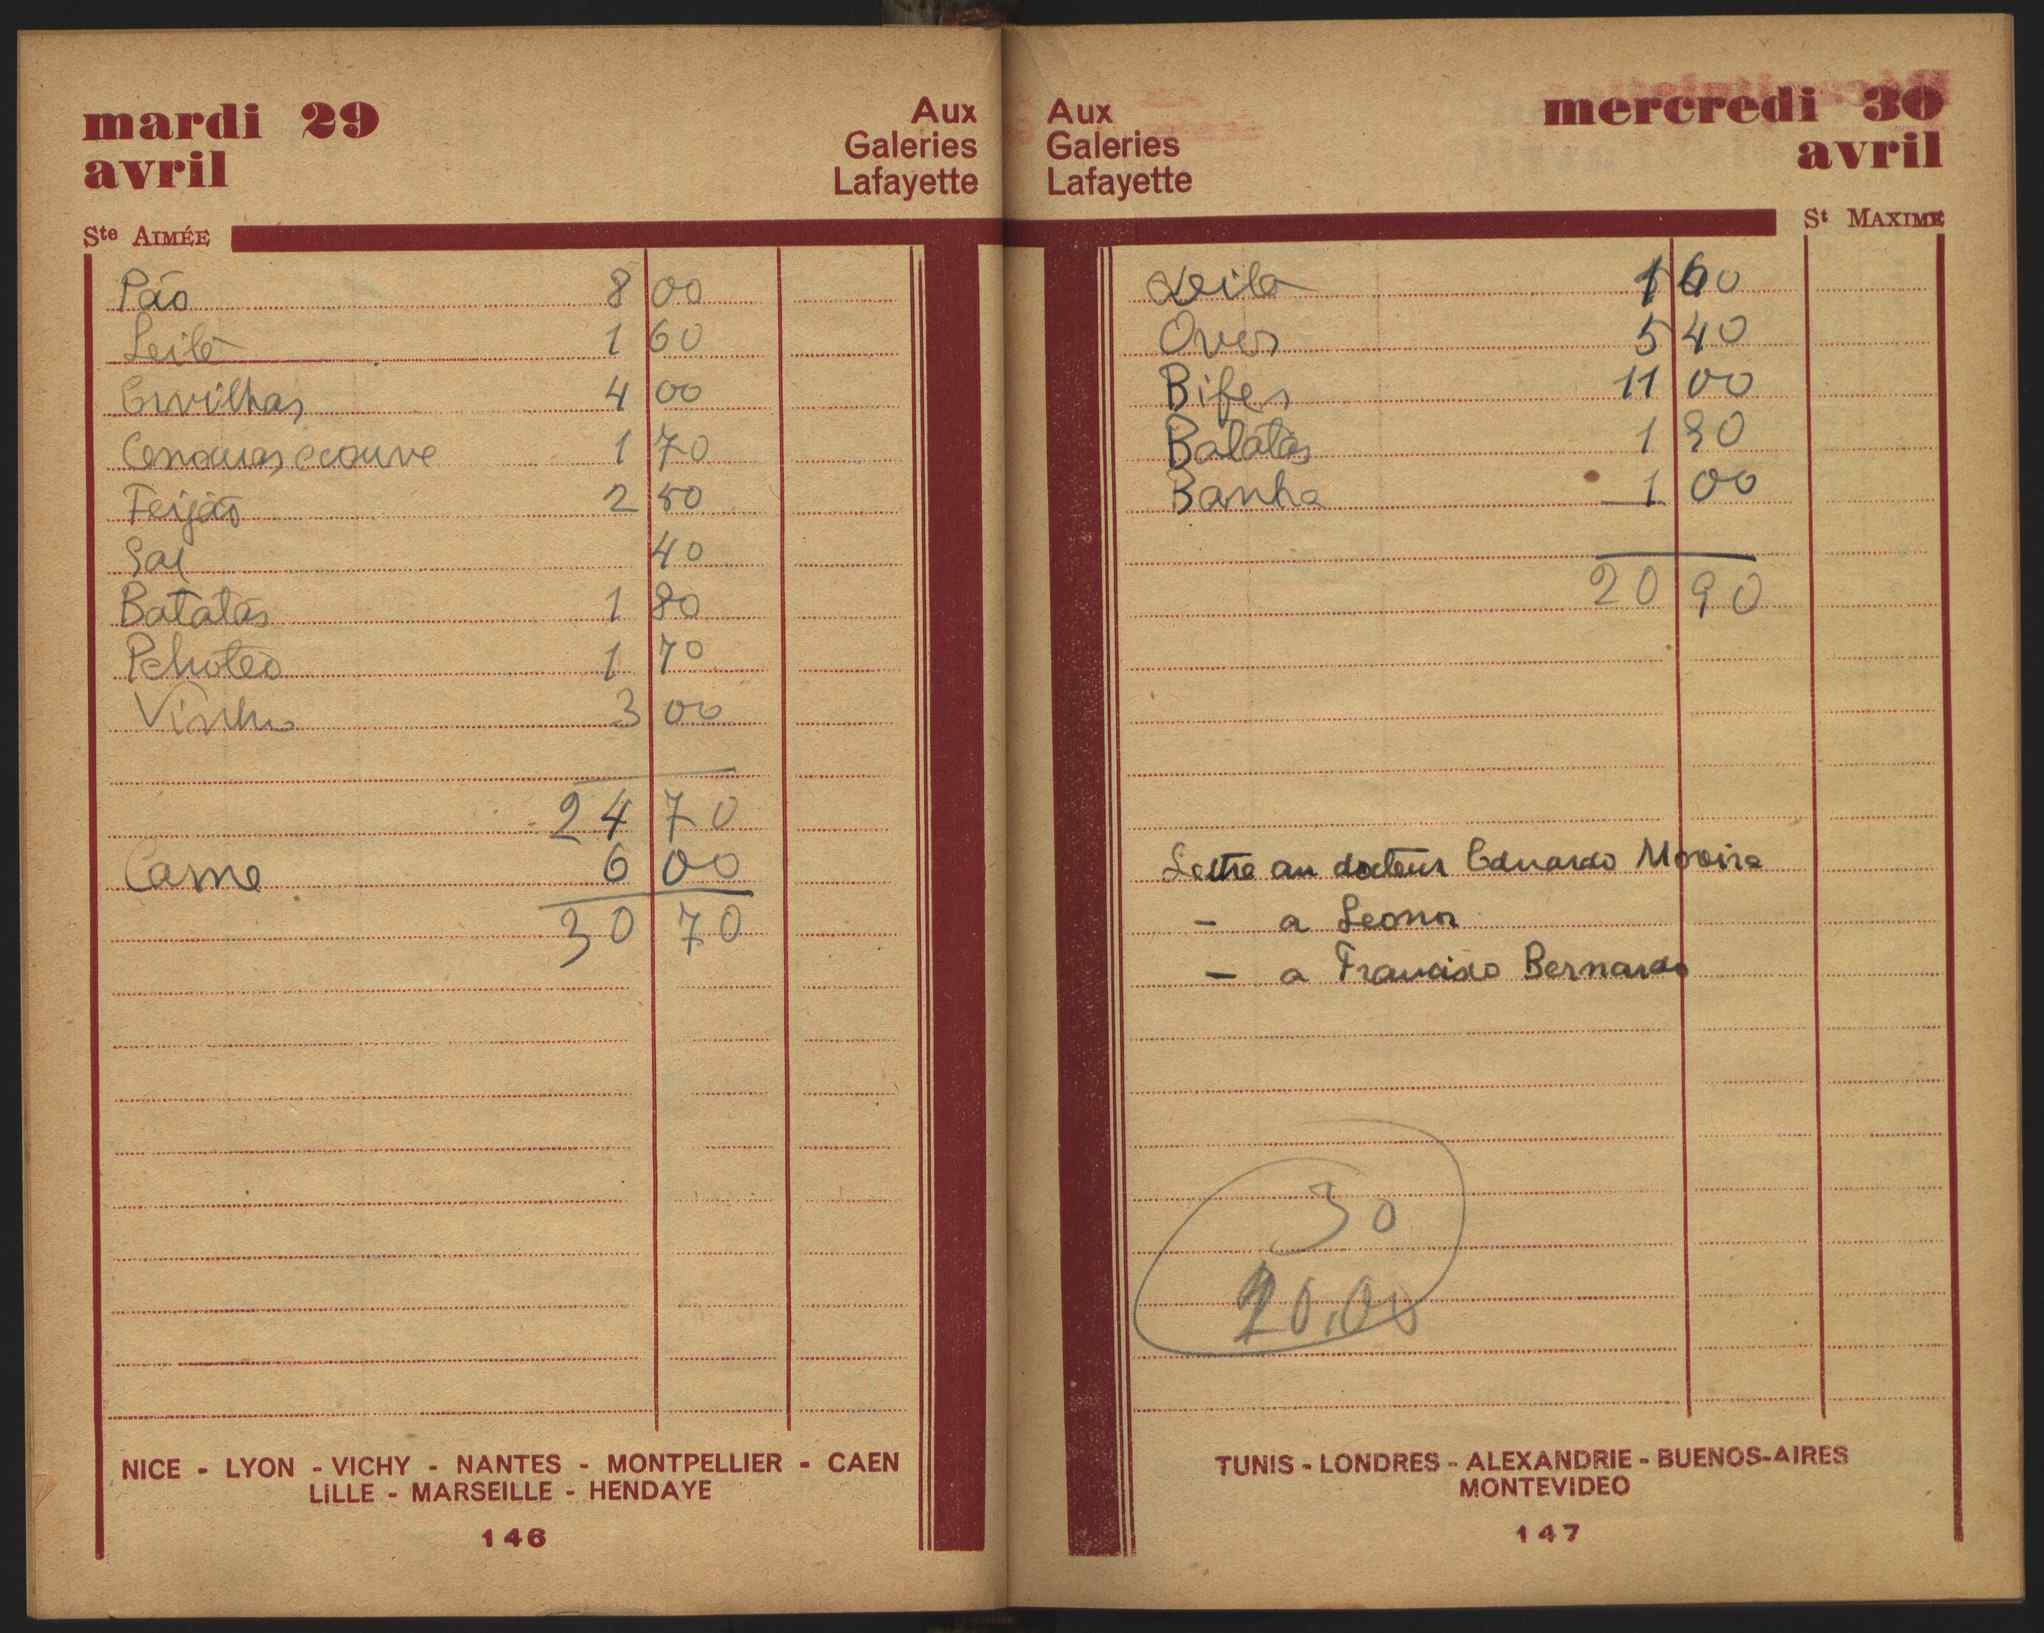 mardi 29
avril
Aux
Galeries
Lafayette
Ste AIMÉE
Pão 8 00
Leite 1 60
Ervilhas 4 00
Cenouras e couve 1 70
Feijão 2 50
Sal 40
Batatas 1 80
1 70
Vinho 3 00
24 70
Carne 6 00
30 70
NICE - LYON - VICHY - NANTES - MONTPELLIER - CAEN
LILLE - MARSEILLE - HENDAYE
146
Aux
Galeries
Lafayette
mercredi 30
avril
St MAXIME
Leite 1 60
Ovos 5 40
Bifes 11 00
Batatas 1 90
Banha 1 00
20 90
Lettre au docteur Eduardo Moreira
- a Leonor
- a Francisco Bernardo
30
20,00
TUNIS - LONDRES - ALEXANDRIE - BUENOS-AIRES
MONTEVIDEO
147